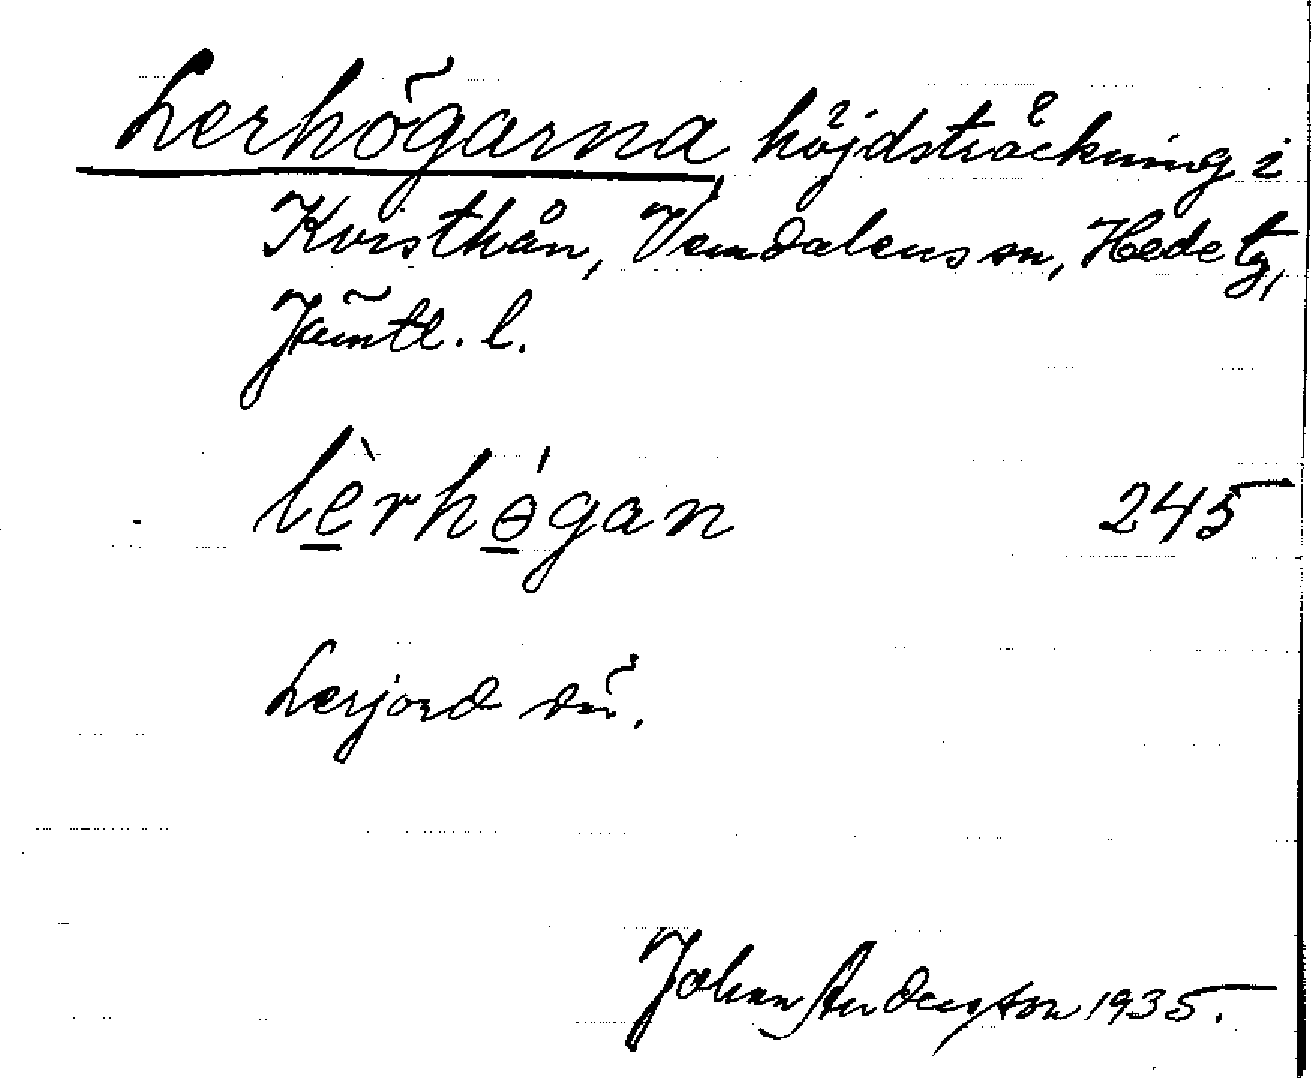 Lerhögarna höjdsträckning i
Kvisthån, Vemdalens sn, Hede tg,
Jämtl. l.
lèrhǿgan 245
Lerjord där.
Johan Anderson 1935.